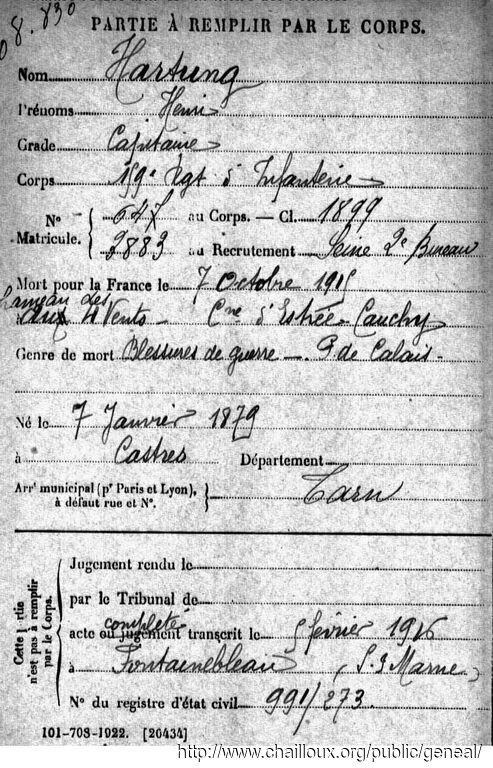 08.830
PARTIE À REMPLIR PAR LE CORPS.
Nom Hartung
Prénoms Henri
Grade Capitaine
Corps 159e Rgt d'Infanterie
N° Matricule. { 647 au Corps. — Cl. 1899
2883 au Recrutement Seine 2e Bureau
Mort pour la France le 7 Octobre 1915
Hameau des
aux 4 Vents - Cne d'Estrée-Cauchy
Genre de mort Blessures de guerre — P. de Calais -
Né le 7 Janvier 1879
à Castres Département
Arrt municipal (pr Paris et Lyon), à défaut rue et N°. } Tarn
Cette partie n'est pas à remplir par le Corps.
Jugement rendu le
par le Tribunal de
complété
acte ou jugement transcrit le 5 février 1916
à Fontainebleau (S. & Marne)
N° du registre d'état civil 991/273
101-708-1922. [26434]
http://www.chailloux.org/public/geneal/